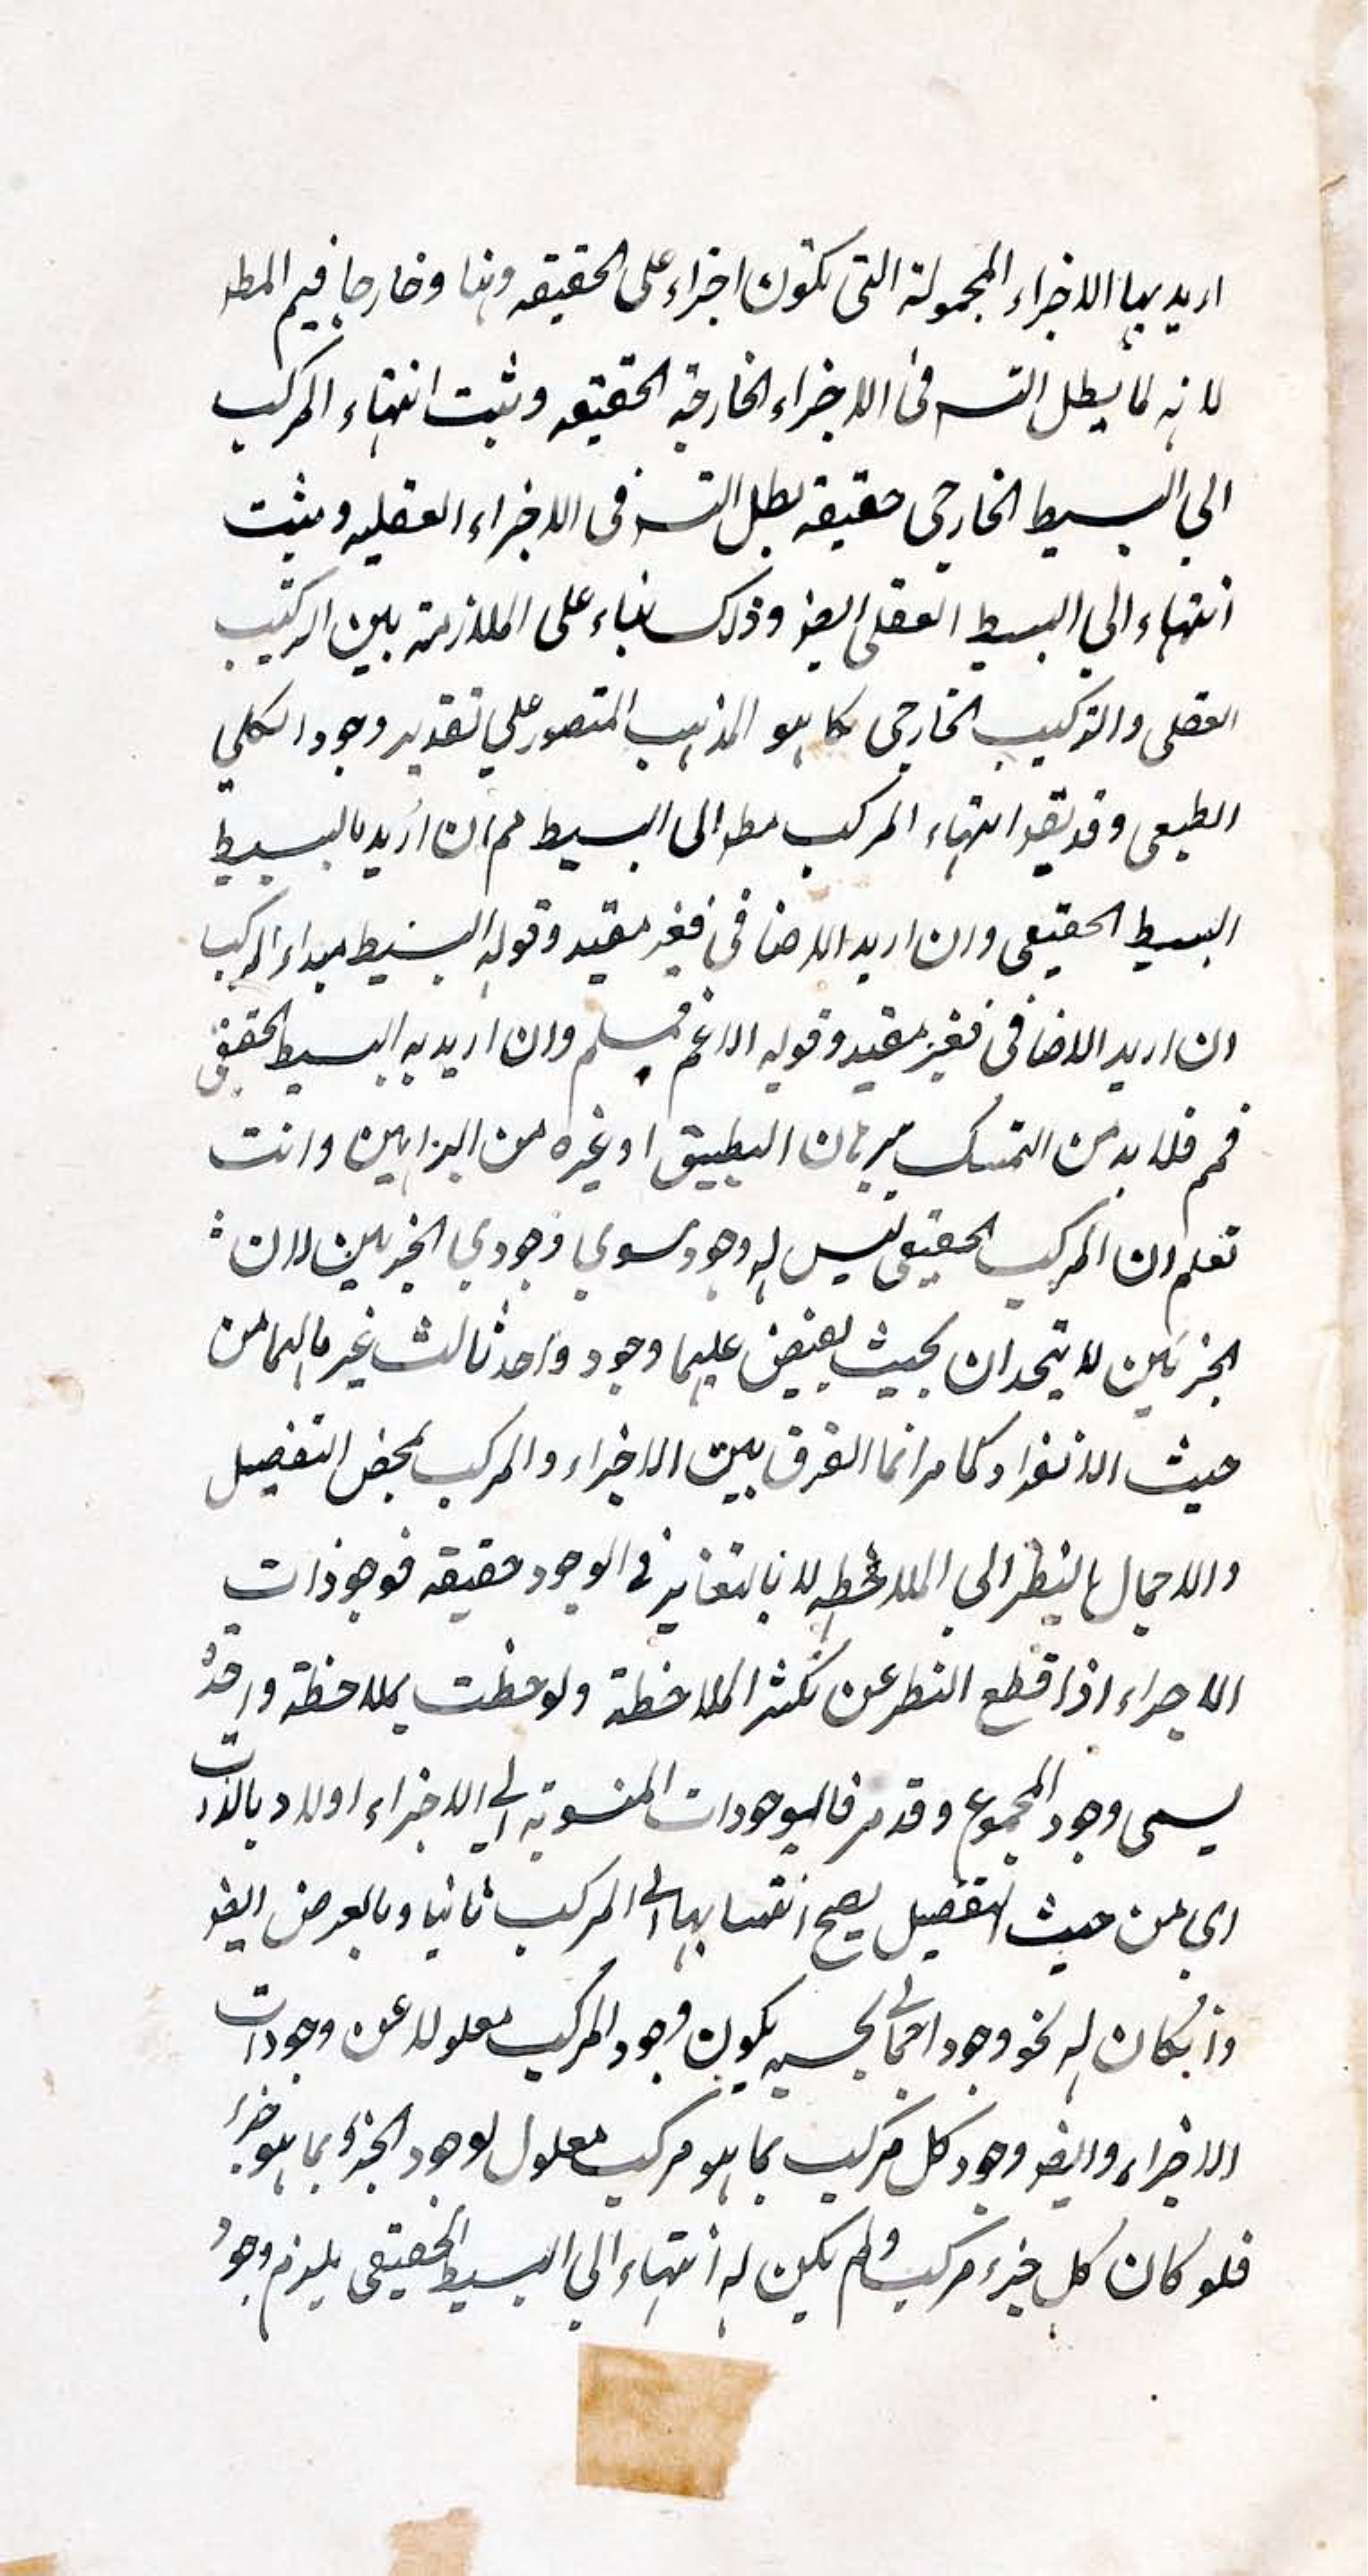 اريد بها الاجزاء المحمولة التى تكون اجزاء على الحقيقه ذهنا وخارجا فيم المط
لانه لما بطل التسـ فى الاجزاء الخارجة الحقيقه وثبت انتهاء المركب
الي البسيط الخارجى حقيقة بطل التسـ فى الاجزاء العقليه ويثبت
انتهاء الي البسيط العقلى ايضو وذلك بناء على الملازمة بين التركيب
العقلى والتركيب الخارجى كما هو المذهب المتصور علي تقدير وجود الكلي
الطبعى وقد يقو انتهاء المركب مط الى البسيط مم ان اريد بالبسيط
البسيط الحقيقى وان اريد الاضافى فغير مفيد وقوله البسيط مبداء المركب
ان اريد الاضافى فغير مفيد وقوله الاعم فمسلم وان اريد به البسيط الحقيقى
فمم فلا بد من التمسك ببرهان التطبيق او غيره من البراهين وانت
تعلم ان المركب الحقيقى ليس له وجود سوي وجودي الجزئين لان
الجزئين لا يتحدان بحيث يفيض عليهما وجود واحد ثالث غير ما لهما من
حيث الانفراد كما مر انما الفرق بين الاجزاء والمركب بمحض التفصيل
والاجمال بالنظر الي الملاحظه لا بالتغاير فى الوجود حقيقه فوجودات
الاجزاء اذا قطع النظر عن تكثر الملاحظة ولوحظت بملاحظة واحدة
يسمى وجود المجموع وقد مر فالموجودات المنسوبة الى الاجزاء اولا وبالذات
اي من حيث التفصيل يصح انتسابها الى المركب ثانيا وبالعرض ايضو
واذ كان له نحو وجود اجمالى بحسبه يكون وجود المركب معلولا عن وجودات
الاجزاء وايضو وجود كل مركب بما هو مركب معلول لوجود الجزء بما هو جزء
فلو كان كل جزء مركب ولم يكن له انتهاء الي البسيط الحقيقى يلزم وجود